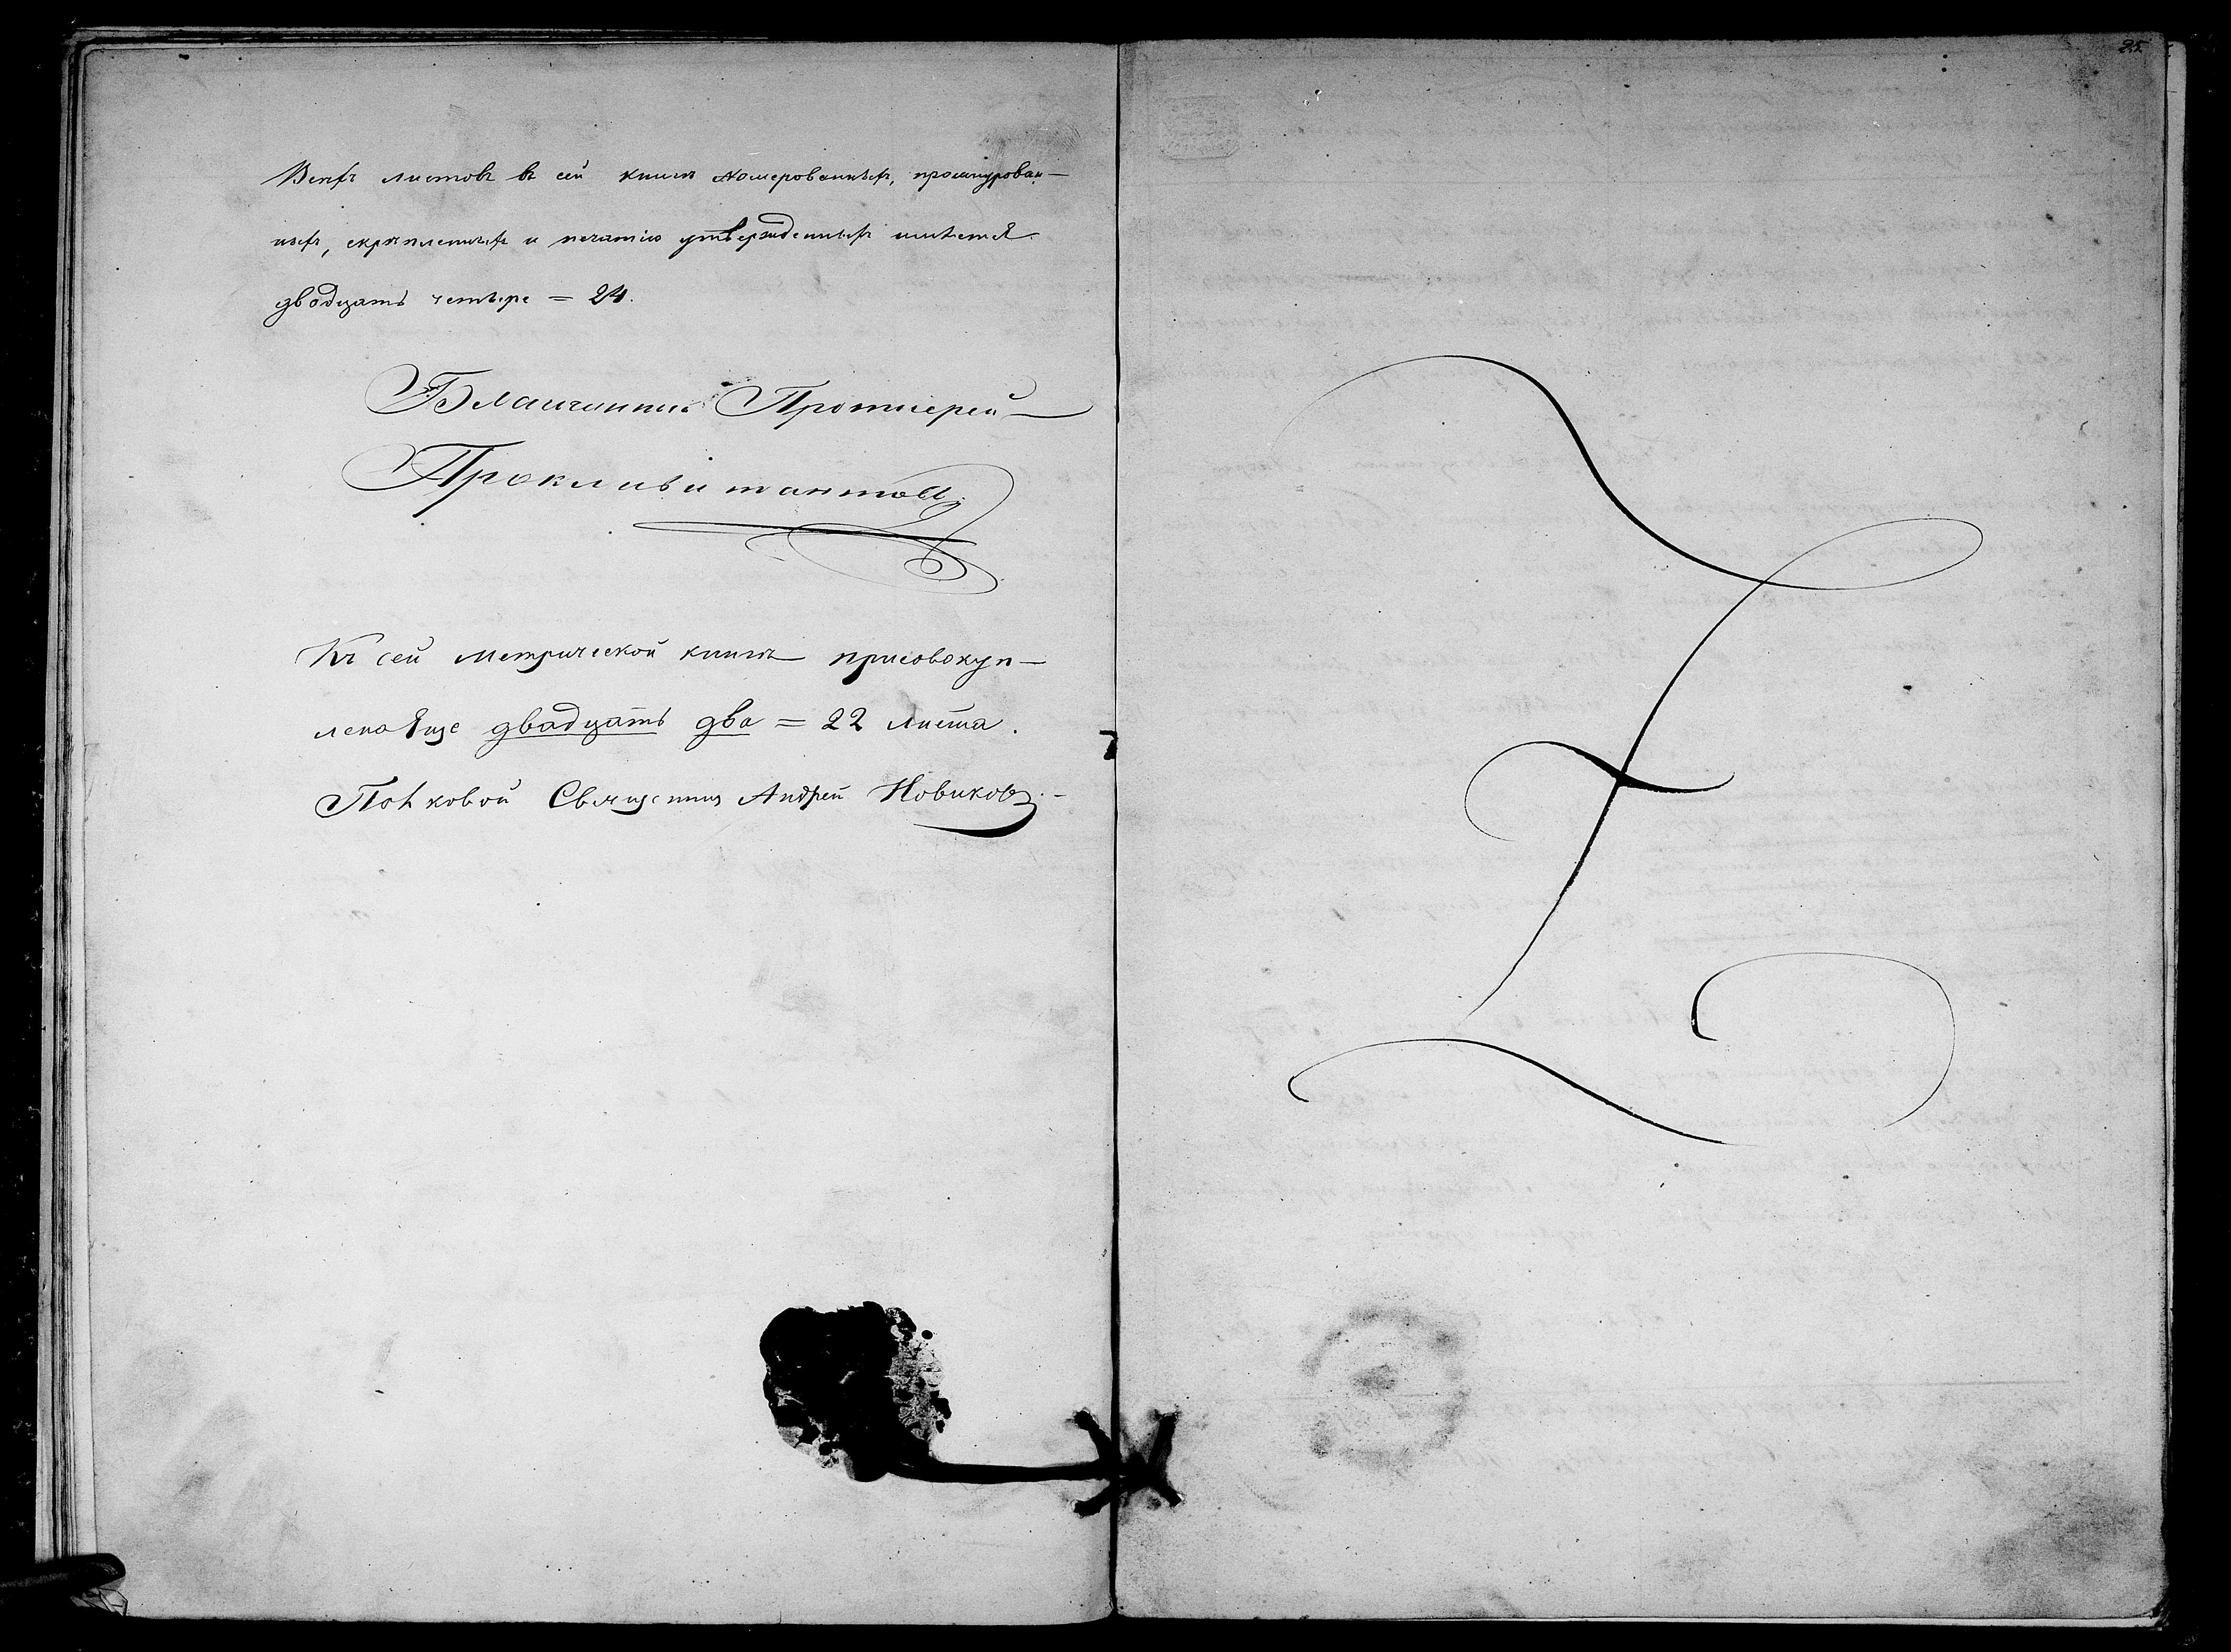 25.
Всехъ листовъ въ сей книгѣ номерованныхъ, прошнурован-
ныхъ, скрѣпленныхъ и печатію утвержденныхъ имѣется
двадцать четыре = 24.
Благочинный Протоіерей
Къ сей метрической книгѣ присовокуп-
лено еще двадцать два = 22 листа.
Полковой Священникъ Андрей Новиковъ.